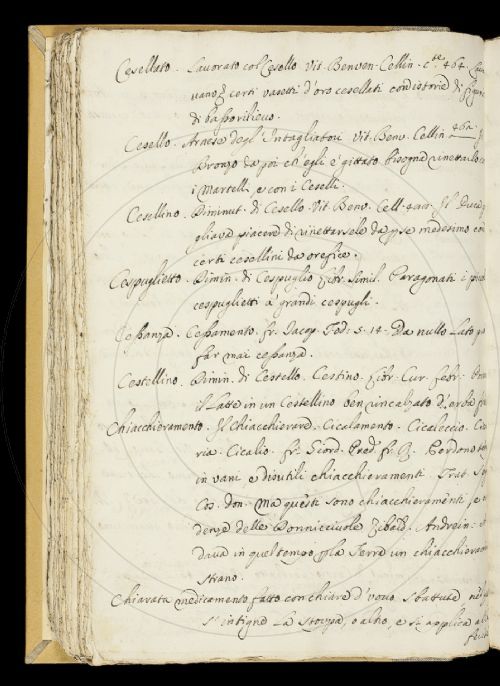 Cesellato. Lavorato col Cesello Vit. Benven. Cellin. c.te 464.
vano certi vasetti d'oro cesellati con istorie di figure
di bassorilievo.
Cesello. Arnese degl'Intagliatori Vit. Benv. Cellin. 462.
Bronzo da poi ch'egli è gittato bisogna rinettarlo co
i Martelli, e con i Ceselli.
Cesellino. Diminut. di Cesello. Vit. Benv. Cell. Il Duca
gliava piacere di rinettarsele da p se medesimo con
certi cesellini da orefice.
Cespuglietto. Dimin. di Cespuglio libr. simil. Paragonati i
cespuglietti a' grandi cespugli.
Cessanza. Cessamento. fr. Iacop. Tod. 5. 14. Da nullo lato
far mai cessanza.
Cestellino. Dimin. di Cestello. Cestino. libr. Cur. febr.
il Latte in un Cestellino ben rincalzato d'erbe
Chiacchieramento. Il Chiacchierare. Cicalamento. Cicaleccio.
ria. Cicalio. fr. Giord. Pred. fr. R. Perdono
in vani e disutili chiacchieramenti. Trat. S.
Cos. don. Ma questi sono chiacchieramenti
denze delle Donnicciuole Zibald. Andrein.
dava in quel tempo p la Terra un chiacchieram
strano.
Chiarata medicamento fatto con chiare d'vovo sbattute
s'intigne La stoppa, o altro, e si applica
ferit